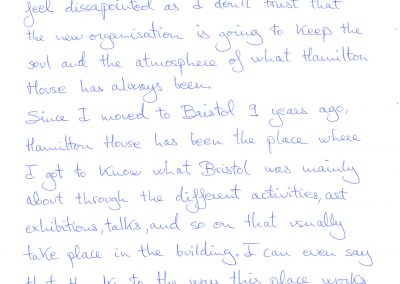 feel dissapointed as I don't trust that
the new organisation is going to keep the
soul and the atmosphere of what Hamilton
House has always been.
Since I moved to Bristol 9 years ago,
Hamilton House has been the place where
I got to know what Bristol was mainly
about through the different activities, art
exhibitions, talks, and so on that usually
take place in the building. I can even say
that thanks to the way this place works